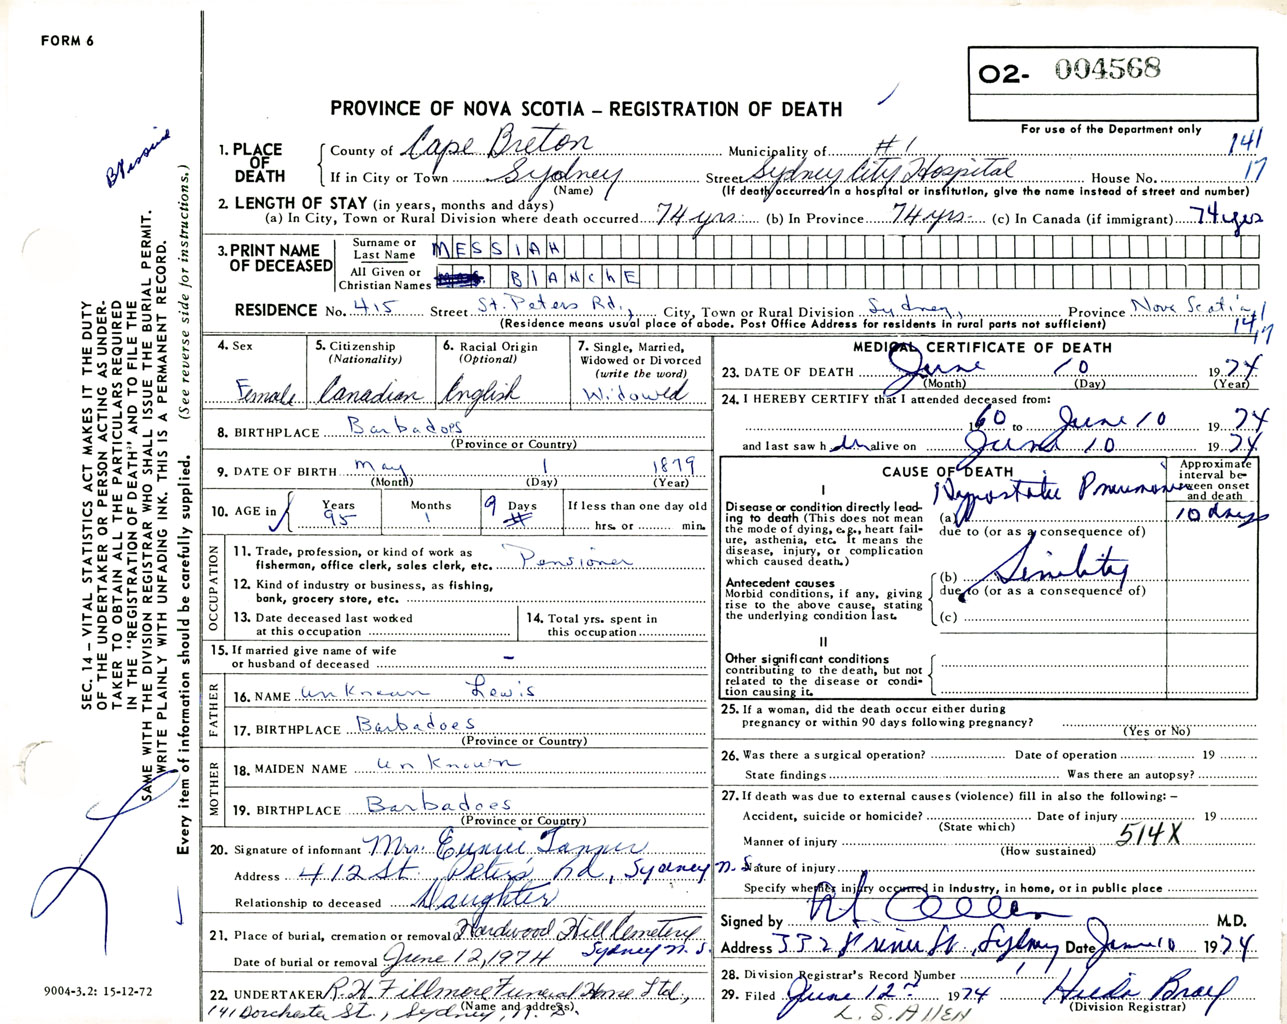 FORM 6
O2- 004568
PROVINCE OF NOVA SCOTIA – REGISTRATION OF DEATH
For use of the Department only
1. PLACE OF DEATH
County of Cape Breton Municipality of #1 141
If in City or Town Sydney Street Sydney City Hospital House No. 17
(Name) (If death occurred in a hospital or institution, give the name instead of street and number)
2. LENGTH OF STAY (in years, months and days)
(a) In City, Town or Rural Division where death occurred 74 yrs. (b) In Province 74 yrs. (c) In Canada (if immigrant) 74 yrs
3. PRINT NAME OF DECEASED
Surname or Last Name MESSIAH
All Given or Christian Names BlANChE
RESIDENCE No. 415 Street St. Peters Rd., City, Town or Rural Division Sydney, Province Nova Scotia
(Residence means usual place of abode. Post Office Address for residents in rural parts not sufficient) 141 17
4. Sex Female
5. Citizenship (Nationality) Canadian
6. Racial Origin (Optional) English
7. Single, Married, Widowed or Divorced (write the word) Widowed
8. BIRTHPLACE Barbadoes
(Province or Country)
9. DATE OF BIRTH May 1 1879
(Month) (Day) (Year)
10. AGE in Years 95 Months 1 Days 9 If less than one day old
hrs. or min.
OCCUPATION
11. Trade, profession, or kind of work as
fisherman, office clerk, sales clerk, etc. Pensioner
12. Kind of industry or business, as fishing,
bank, grocery store, etc.
13. Date deceased last worked
at this occupation
14. Total yrs. spent in
this occupation
15. If married give name of wife
or husband of deceased –
FATHER
16. NAME unknown Lewis
17. BIRTHPLACE Barbadoes
(Province or Country)
MOTHER
18. MAIDEN NAME unknown
19. BIRTHPLACE Barbadoes
(Province or Country)
20. Signature of informant Mrs. Eunice Tanner
Address 412 St. Peters Rd, Sydney N.S.
Relationship to deceased Daughter
21. Place of burial, cremation or removal Hardwood Hill Cemetery
Sydney N.S.
Date of burial or removal June 12, 1974
22. UNDERTAKER R.H. Fillmore Funeral Home Ltd.,
(Name and address)
141 Dorchester St., Sydney, N.S.
MEDICAL CERTIFICATE OF DEATH
23. DATE OF DEATH June 10 1974
(Month) (Day) (Year)
24. I HEREBY CERTIFY that I attended deceased from:
1960 to June 10 1974
and last saw her alive on June 10 1974
CAUSE OF DEATH
Approximate interval between onset and death
I
Disease or condition directly leading to death (This does not mean the mode of dying, e.g., heart failure, asthenia, etc. It means the disease, injury, or complication which caused death.)
(a) Hypostatic Pneumonia 10 days
due to (or as a consequence of)
Antecedent causes
Morbid conditions, if any, giving rise to the above cause, stating the underlying condition last.
(b) Senility
due to (or as a consequence of)
(c)
II
Other significant conditions
contributing to the death, but not related to the disease or condition causing it.
25. If a woman, did the death occur either during
pregnancy or within 90 days following pregnancy?
(Yes or No)
26. Was there a surgical operation? Date of operation 19
State findings Was there an autopsy?
27. If death was due to external causes (violence) fill in also the following: –
Accident, suicide or homicide? Date of injury 19
(State which)
Manner of injury 514X
(How sustained)
Nature of injury
Specify whether injury occurred in industry, in home, or in public place
Signed by M.D.
Address 332 Prince St, Sydney Date June 10 1974
28. Division Registrar's Record Number 1
29. Filed June 12 1974 Hilda Bray
(Division Registrar)
L. S. ALLEN
SEC. 14 – VITAL STATISTICS ACT MAKES IT THE DUTY
OF THE UNDERTAKER OR PERSON ACTING AS UNDER-
TAKER TO OBTAIN ALL THE PARTICULARS REQUIRED
IN THE "REGISTRATION OF DEATH" AND TO FILE THE
SAME WITH THE DIVISION REGISTRAR WHO SHALL ISSUE THE BURIAL PERMIT.
WRITE PLAINLY WITH UNFADING INK. THIS IS A PERMANENT RECORD.
Every item of information should be carefully supplied. (See reverse side for instructions.)
9004-3.2: 15-12-72